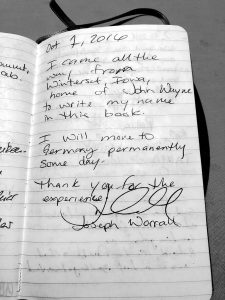 Oct 1, 2016
I came all the
way from
Winterset, Iowa,
home of John Wayne
to write my name
in this book.
I will move to
Germany permanently
some day.
Thank you for the
experience,
Joseph Worrall